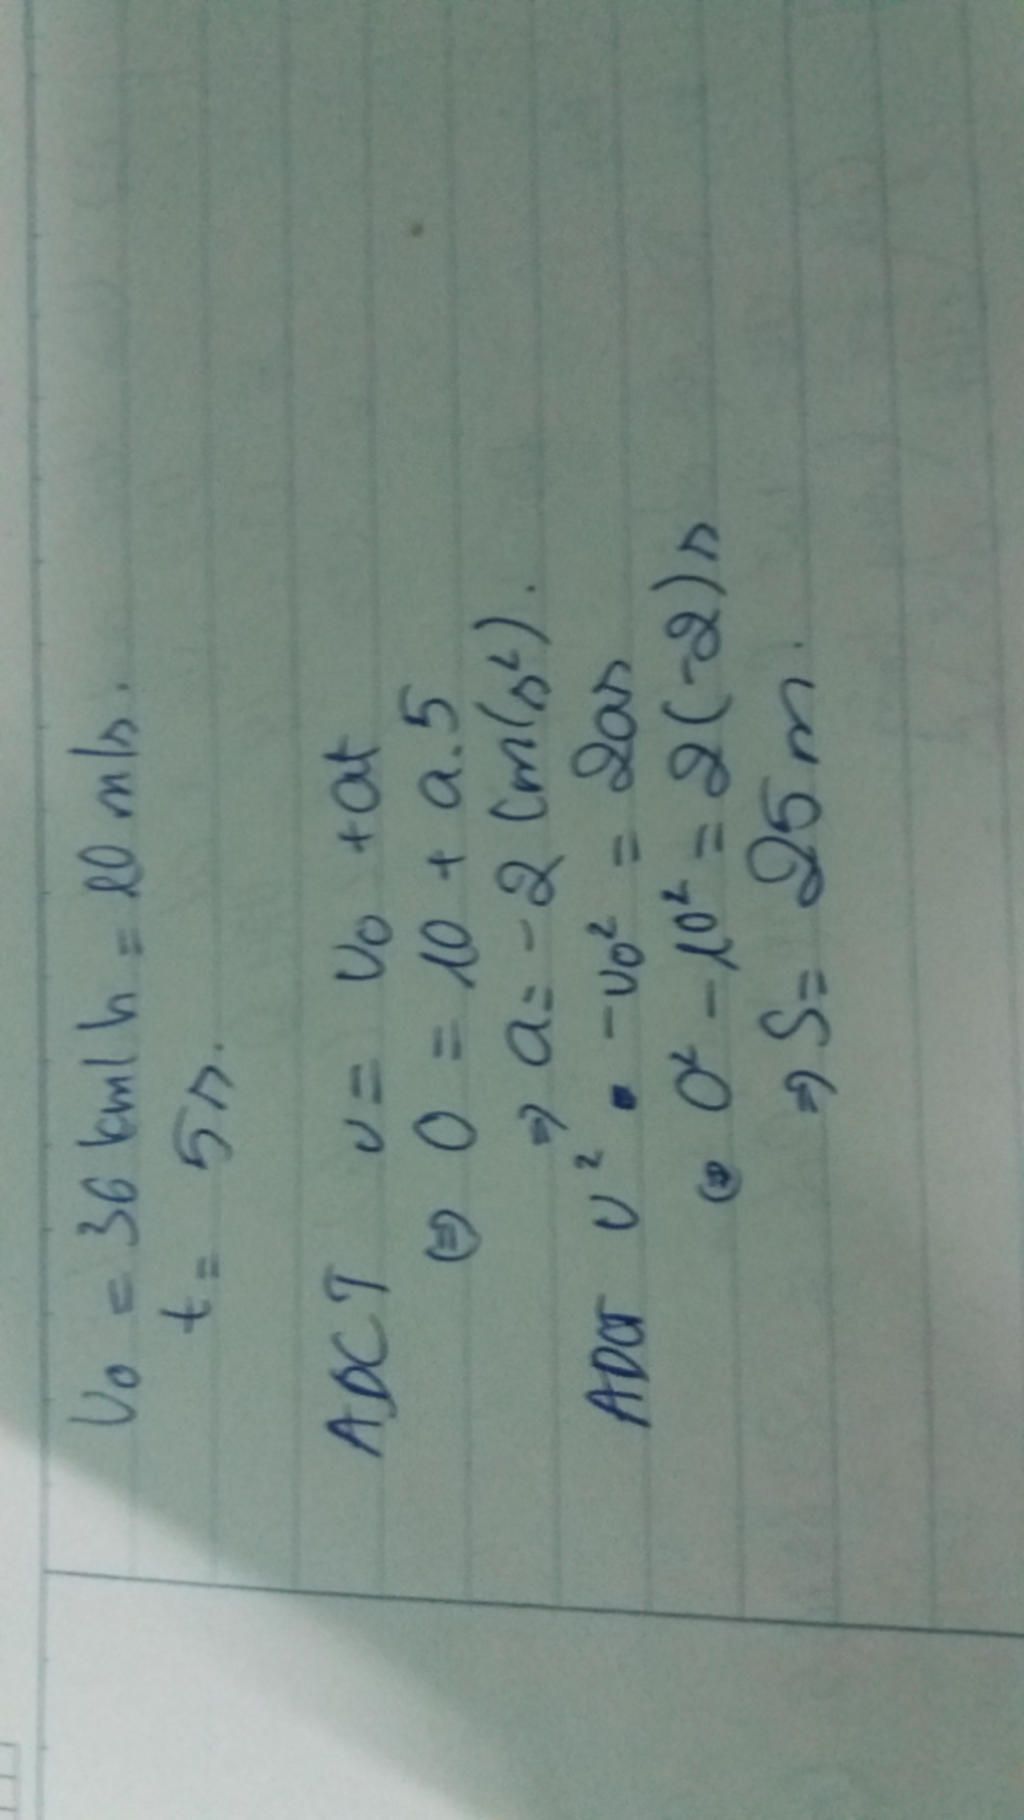 v₀ = 36 km/h = 10 m/s.
t = 5s.
ADCT v = v₀ + at
(=) 0 = 10 + a.5
=) a = -2 (m/s²).
ADCT v² - v₀² = 2as
(=) 0² - 10² = 2(-2)s
=) S = 25 m.